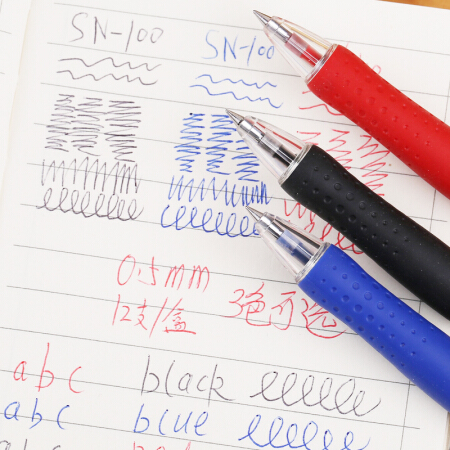 SN-100 SN-100
0.5mm
12支/盒 3色可选
abc black
abc blue